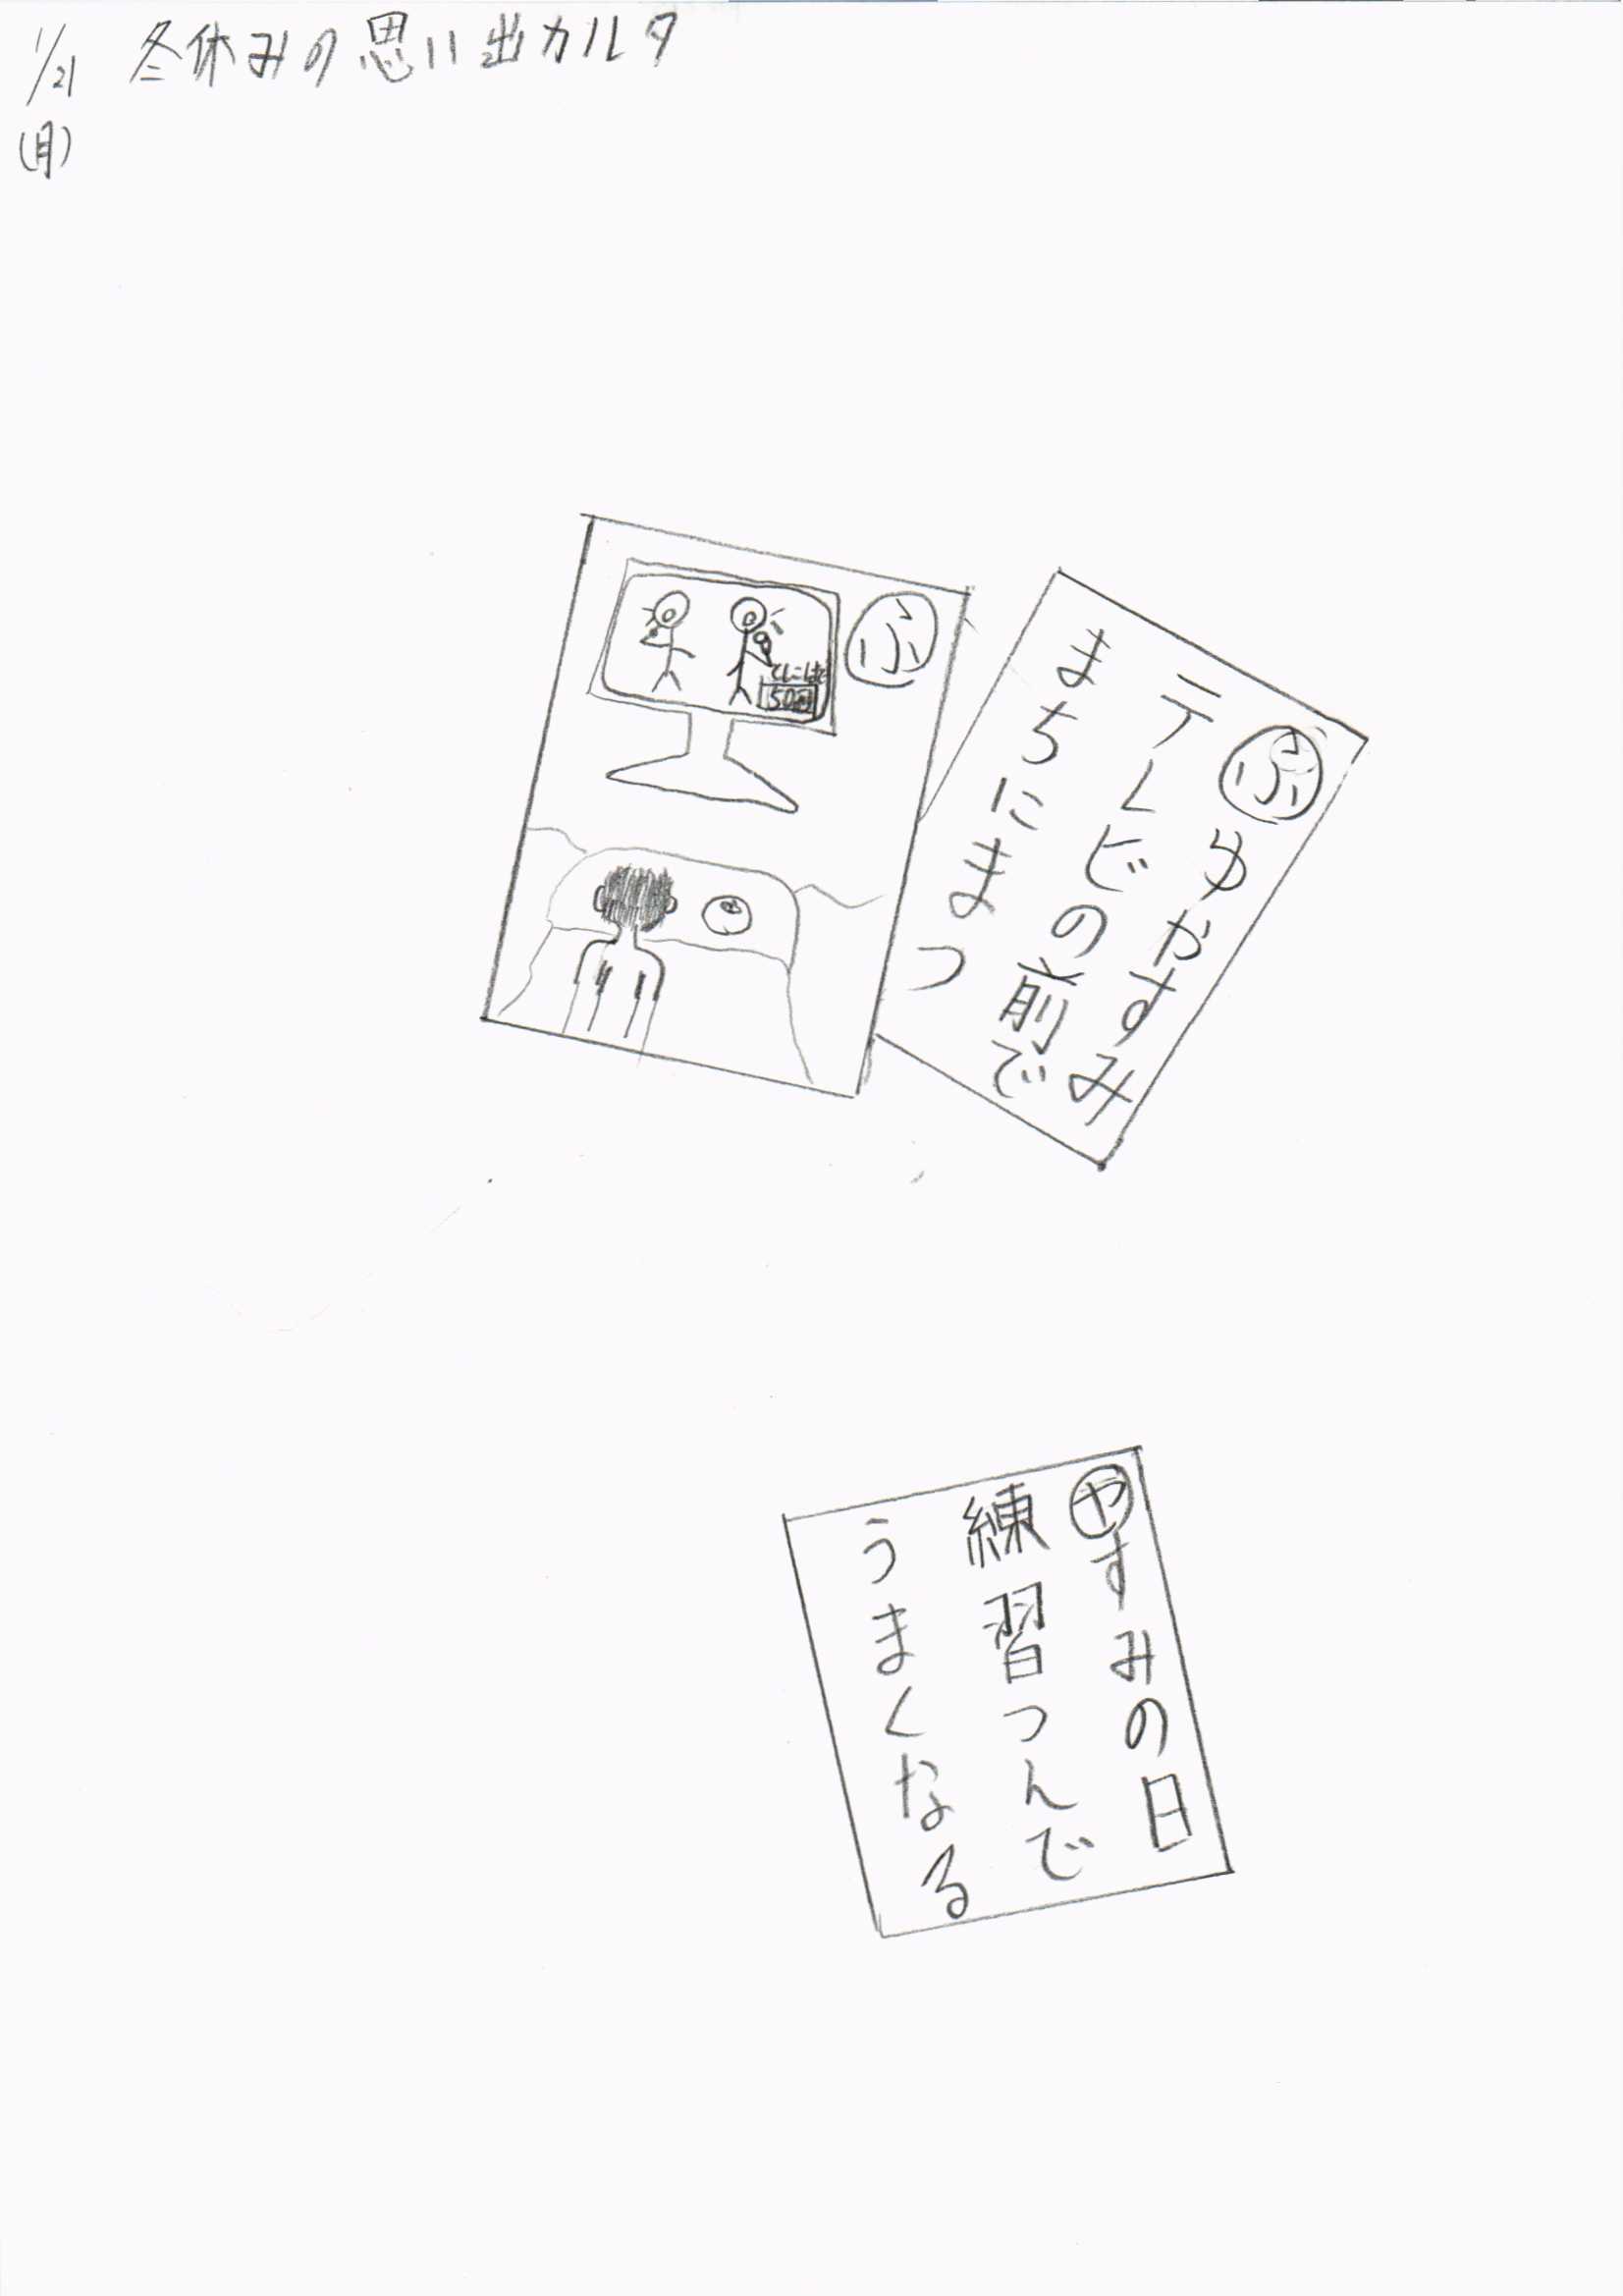 1/21
(月)
冬休みの思い出カルタ
ふ
50回
ふゆやすみ
テレビの前で
まちにまつ
やすみの日
練習つんで
うまくなる